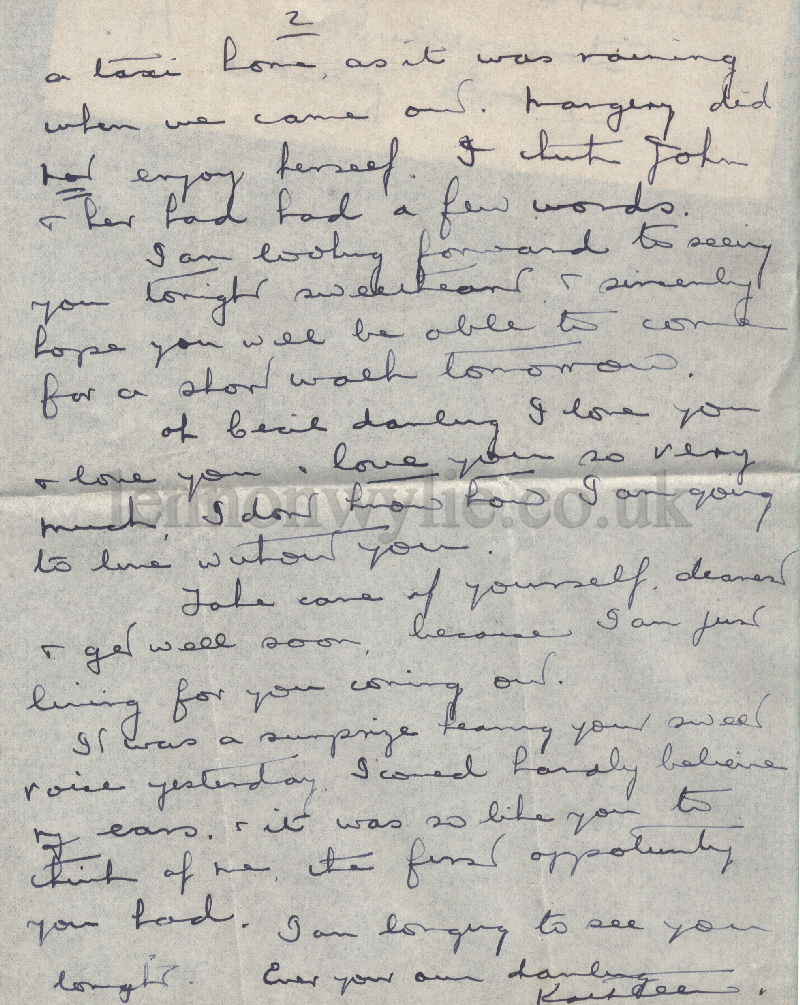 2
a taxi home, as it was raining
when we came out. Margery did
not enjoy herself. I think John
+ her had had a few words.
I am looking forward to seeing
you tonight sweetheart + sincerely
hope you will be able to come
for a short walk tomorrow.
Oh Cecil darling I love you
+ love you + love you so very
much, I don't know how I am going
to live without you.
Take care of yourself, dearest
+ get well soon, because I am just
living for you coming out.
It was a surprize hearing your sweet
voice yesterday. I could hardly believe
my ears. + it was so like you to
think of me, the first oppotunity
you had. I am longing to see you
tonight. Ever your own darling
Kathleen.
lennonwylie.co.uk